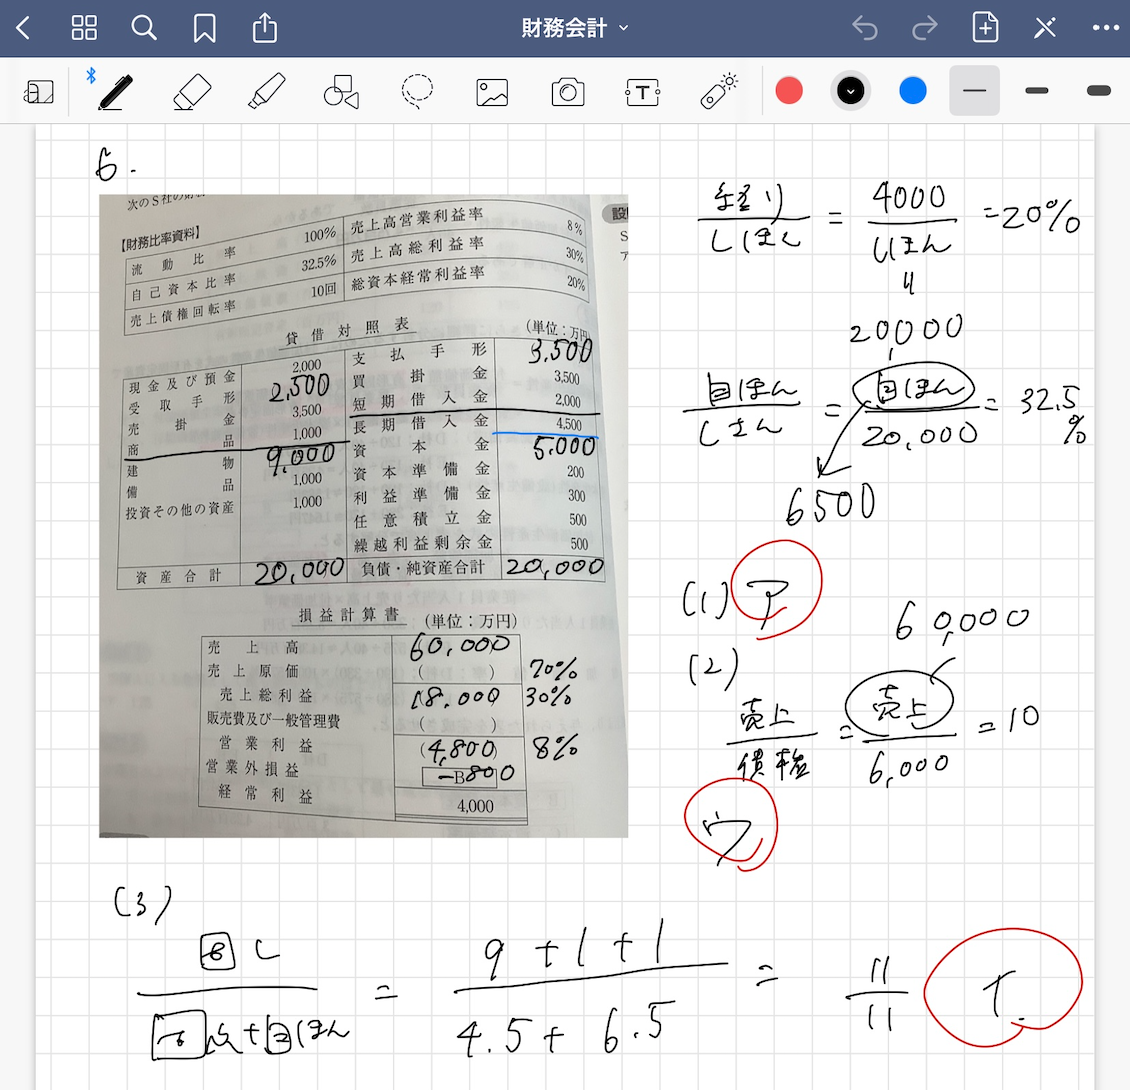 財務会計
6.
次のS社の財務
【財務比率資料】
流動比率 100% 売上高営業利益率 8%
自己資本比率 32.5% 売上高総利益率 30%
売上債権回転率 10回 総資本経常利益率 20%
貸借対照表 (単位：万円)
現金及び預金 2,000 支払手形 3,500
受取手形 2,500 買掛金 3,500
売掛金 3,500 短期借入金 2,000
商品 1,000 長期借入金 4,500
建物 9,000 資本金 5,000
備品 1,000 資本準備金 200
投資その他の資産 1,000 利益準備金 300
任意積立金 500
繰越利益剰余金 500
資産合計 20,000 負債・純資産合計 20,000
損益計算書 (単位：万円)
売上高 60,000
売上原価 ( ) 70%
売上総利益 18,000 30%
販売費及び一般管理費 ( )
営業利益 (4,800) 8%
営業外損益 -B800
経常利益 4,000
経り/しほん = 4000/しほん = 20%
20,000
自ほん/しさん = 自ほん/20,000 = 32.5%
6500
(1) ア
60,000
(2)
売上/債権 = 売上/6,000 = 10
ウ
(3)
固し/固ふ+自ほん = 9+1+1/4.5+6.5 = 11/11 イ.